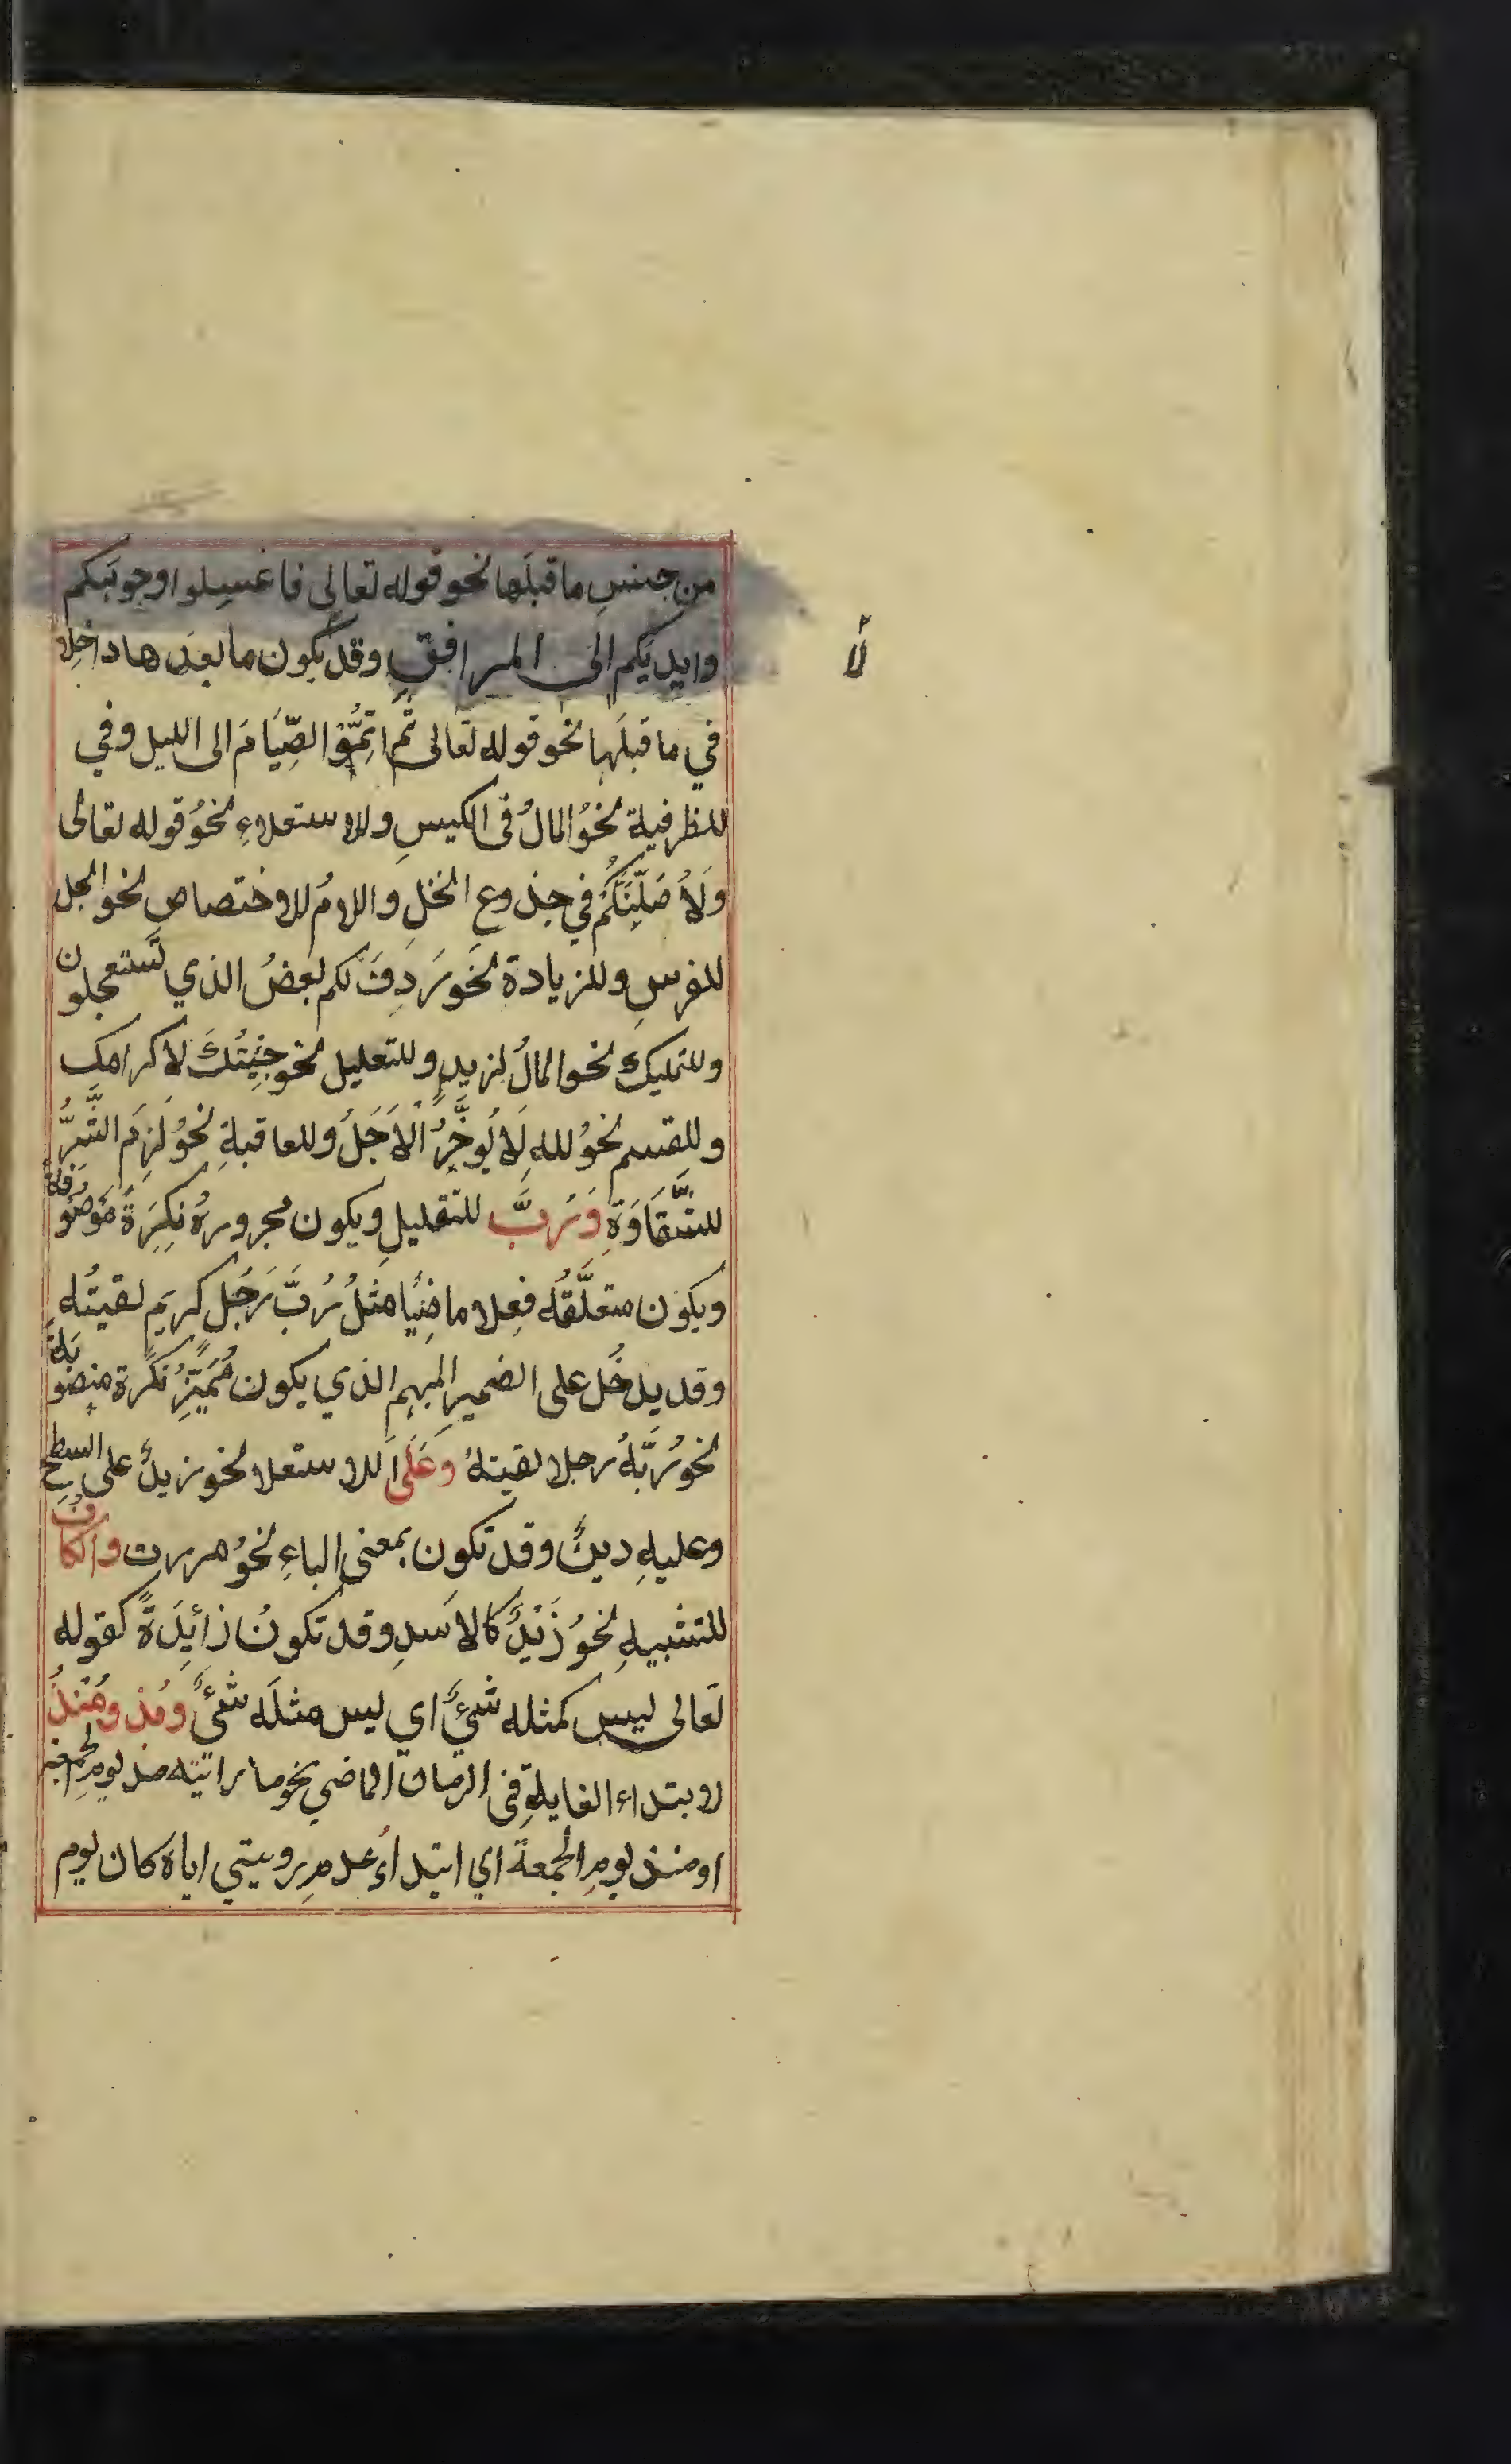 من جنسِ ما قبلَها نحو قوله تعالى فاغسِلوا وجوهَكم
وايديَكم الى المرافقِ وقد يكون ما بعدَ ها داخلا
لاً
في ما قبلَها نحو قوله تعالى ثُمَّ اتِمُّوْا الصِّيَامَ الى الليل وفي
للظرفية نحوُ المالُ فى الكيسِ وللاستعلاءِ نحوُ قوله تعالى
وَلَاُصَلِّبَنَّكُمْ في جذوع النخلِ واللامُ للاختصاصِ نحو الجل
للفرسِ وللزيادة نحوَ رَدِفَ لكم بعضُ الذي تَستعجلون
وللتمليك نحو المالُ لِزيدٍ وللتعليل نحو جِئتُكَ لاكرامك
وللقسم نحوُ للهِ لَا يُوخَّرُ الْاَجَلُ وللعاقبةِ نحوُ لَزِمَ الشَّرُّ
للشَّقَاوَةِ وَرُبَّ للتقليلِ ويكون مجرورهُ نكِرَةً مَوصُوفة
ويكون متعلَّقُه فِعلا ماضِيًا مثلُ رُبَّ رَجُلٍ كريمٍ لقيتُه
وقد يدخُل على الضميرِ المبهم الذي يكون مُمَيِّزُ نكرة منصوبةً
نحوُ رُبَّهُ رجلا لقيتهُ وعَلَى للاستعلا نحو زيدٌ على السطحِ
وعليهِ دينٌ وقد تكون بمعنى الباءِ نحوُ مررت والكافُ
للتشبيهِ نحوُ زَيْدٌ كالاسَدِ وقد تكونُ زائِدَةً كقوله
تعالى ليس كمثله شَيءٌ اي ليس مثلَه شَيءٌ ومُذ ومُنْذُ
لابتداء الغايةِ فى الزمان الماضي نحو ما رائيته مذ يومِ الجمعة
او منذ يومِ الجمعة اي ابتداءُ عدمِ رويتي اياه كان يوم